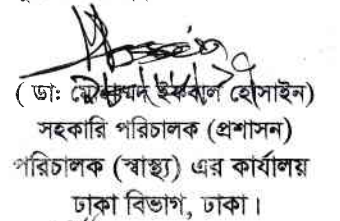 ( ডা: মোহাম্মদ ইকবাল হোসাইন)
সহকারি পরিচালক (প্রশাসন)
পরিচালক (স্বাস্থ্য) এর কার্যালয়
ঢাকা বিভাগ, ঢাকা।